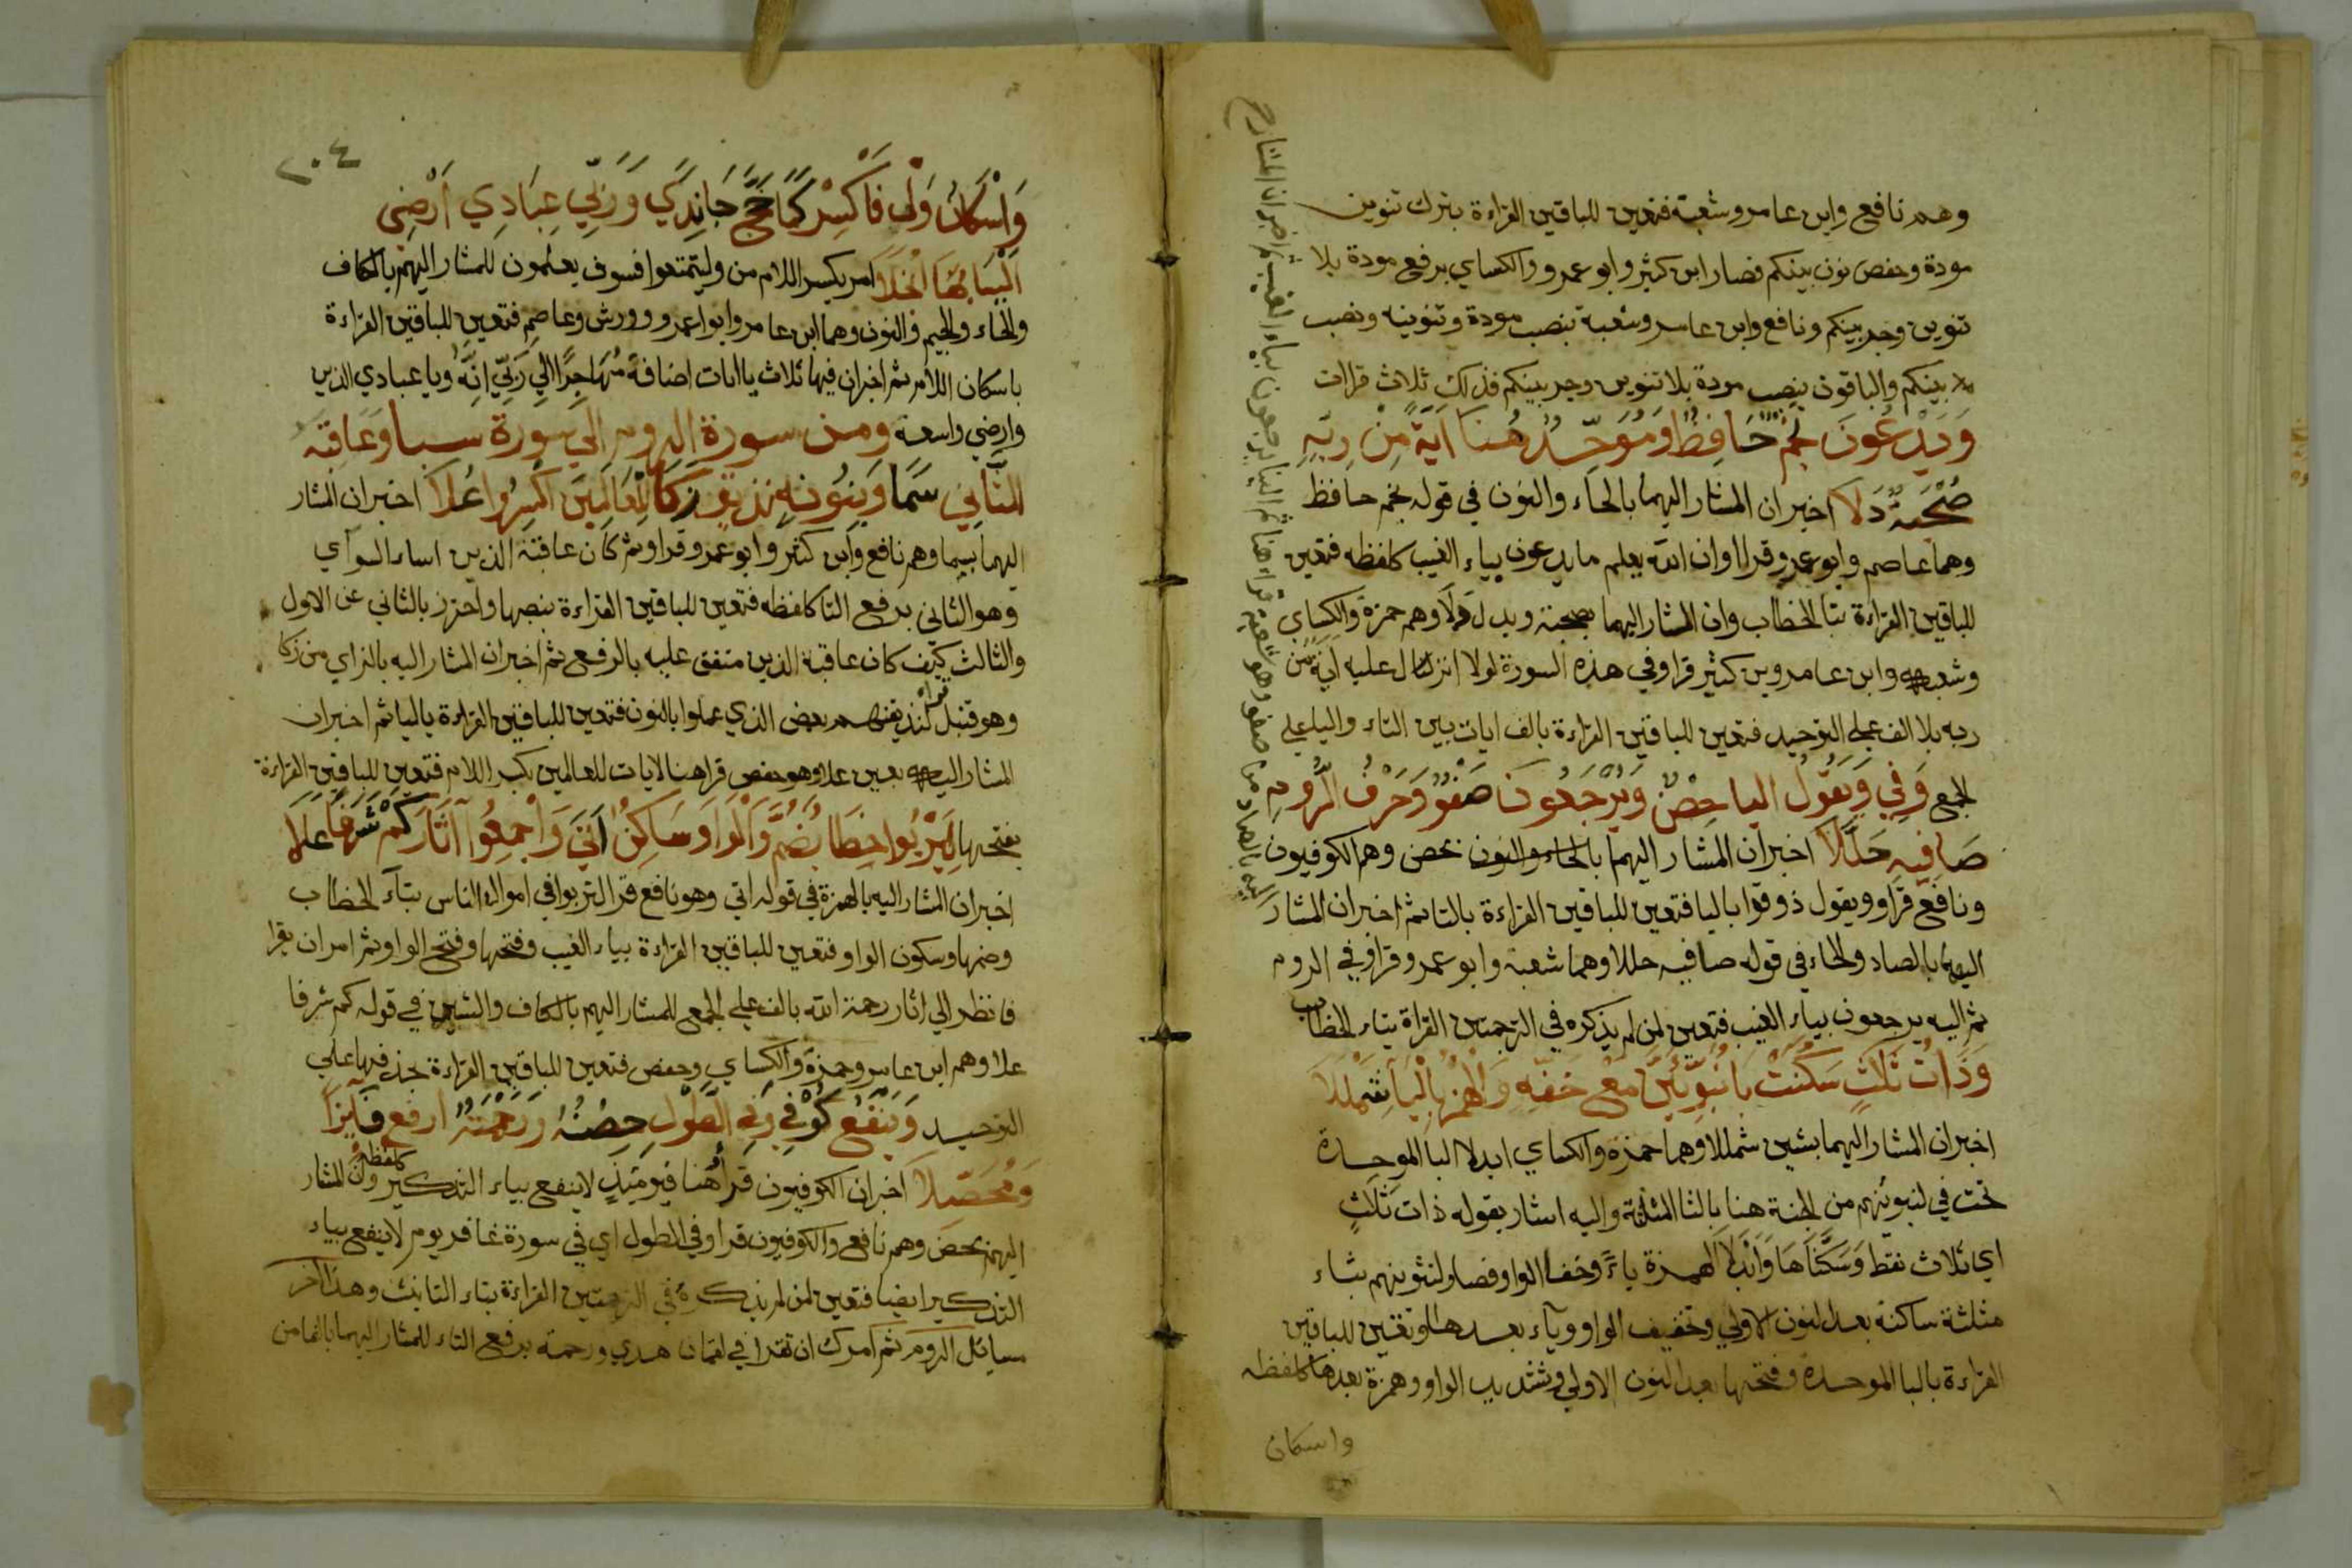 وهم نافع وابن عامر وشعبة فتعين للباقين القراءة بترك تنوين
مودة وخفض نون بينكم فصار ابن كثير وابو عمرو والكساي برفع مودة بلا
تنوين وجر بينكم ونافع وابن عامر وشعبة بنصب مودة وتنوينه ونصب
بينكم والباقون بنصب مودة بلا تنوين وجر بينكم فذلك ثلاث قراات
وَيَدْعُونَ نَجْمٌ حَافِظٌ وَمُوَحِّدٌ هُنَا آيَةٌ مِنْ رَبِّهِ
صُحْبَةٌ دَلَا اخبر ان المشار اليهما بالحاء والنون في قوله نجم حافظ
وهما عاصم وابو عمرو قراا وان الله يعلم ما يدعون بياء الغيب كلفظه فتعين
للباقين القراءة بتا الخطاب وان المشار اليهما بصحبة وبدال دلا وهم حمزة والكساي
وشعبه وابن كثير قراو في هذه السورة لولا انزل عليه اية من
ربه بلا الف على التوحيد فتعين للباقين القراءة بالف ايات بين التاء والياء علي
الجمع وَفِي وَيَقُولُ اليا حِصْنٌ وَيُرْجَعُونَ صَفْوٌ وَحَرْفُ الرُّومِ
صَافِيهِ حُلِّلَا اخبر ان المشار اليهم بالحاء والنون بحصن وهم الكوفيون
ونافع قراو ويقول ذوقوا باليا فتعين للباقين القراءة بالنا ثم اخبر ان المشار
اليهما بالصاد والحاء في قوله صافيه حللا وهما شعبة وابو عمرو قراو في الروم
ثم اليه يرجعون بياء الغيب فتعين لمن لم يذكره في الترجمتين القراة بتاء الخطاب
وَذَاتُ ثَلَاثٍ سَكَنَتْ بَا نُبَوِّئَنَّ مَعْ خَفِّهِ وَالْهَمْزُ بِالْيَا شَمْلَلَا
اخبر ان المشار اليهما بشين شمللا وهما حمزة والكساي ابدلا البا الموحدة
تحت في لنبوئنهم من الجنة هنا بالثا المثلثة واليه اشار بقوله ذات ثلاث
اي ثلاث نقط وَسَكَّنَاهَا وَابْدَلَا الهمزة ياءً وخففا الواو فصار لنثوينهم بثاء
مثلثة ساكنة بعد النون الاولي وتخفيف الواو وياء بعدها وتعين للباقين
القراءة بالبا الموحدة وفتحها بعد النون الاولي وتشديد الواو وهمزة بعدها كلفظه
واسكان
اليه بالصاد من صفو وهو شعبة قراء هنا ثم الينا يرجعون بياء الغيب ثم اخبر ان المشار
٢٠٤
وَاسْكَانُ وَلْ فَاكْسِرْ كَمَا حَجَّ جَا نَدًى وَرَبِّي عِبَادِي اَرْضِي
الْيَا بِهَا انْجَلَا امر بكسر اللام من وليتمتعوا فسوف يعلمون للمشار اليهم بالكاف
والحاء والجيم والنون وهما ابن عامر وابو عمرو وورش وعاصم فتعين للباقين القراءة
باسكان اللام ثم اخبر ان فيها ثلاث ياات اضافة مُهَاجِرٌ الي رَبِّي اِنَّهُ ويا عبادي الذين
وارضي واسعة ومن سورة الروم الي سورة سبا وَعَاقِبَةُ
الثَّانِي سَمَا وَبِنُونِهِ نُذِيقُ زَكَا لِلْعَالَمِينَ اكْسِرُوا عُلَا اخبر ان المشار
اليهما بسما وهم نافع وابن كثير وابو عمرو قراو ثم كان عاقبة الذين اساءا السوآي
وهو الثاني برفع التا كلفظه فتعين للباقين القراءة بنصبها واحترز بالثاني عن الاول
والثالث كيف كان عاقبة الذين متفق عليه بالرفع ثم اخبر ان المشار اليه بالزاي من زكا
وهو قنبل قراء لنذيقنهم بعض الذي عملوا بالنون فتعين للباقين القراءة باليا ثم اخبر ان
المشار اليه بعين علا وهو حفص قرا هنا لايات للعالمين بكسر اللام فتعين للباقين القراءة
بفتحها لِيَرْبُوا خِطَابٌ ضُمَّ وَالْوَاوُ سَاكِنٌ اَتَى وَاجْمَعُوا آثَارِ كَمْ شَرَفًا عَلَا
اخبر ان المشار اليه بالهمزة في قوله اتي وهو نافع قرا لتربوا في اموال الناس بتاء الخطاب
وضمها وسكون الواو فتعين للباقين القراءة بياء الغيب وفتحها وفتح الواو ثم امر ان يقرا
فانظر الي اثار رحمة الله بالف علي الجمع للمشار اليهم بالكاف والشين في قوله كم شرفا
علا وهم ابن عامر وحمزة والكساي وحفص فتعين للباقين القراءة بحذفها علي
التوحيد وَيَنْفَعُ كُوفِي وَفِي الطَّوْلِ حِصْنُهُ وَرَحْمَةً ارفع فَايِزًا
وَمُحَصِّلَا اخبر ان الكوفيون قراو هُنا فيومئذٍ لا ينفع بياء التذكير كلفظه وان المشار
اليهم بحصن وهم نافع والكوفيون قراو في الطول اي في سورة غافر يوم لا ينفع بياء
التذكير ايضا فتعين لمن لم يذكره في الترجمتين القراءة بتاء التانيث وهذا اخر
مسائل الروم ثم امرك ان تقرا في لقمان هدي ورحمة برفع التاء للمشار اليهما بالفا من